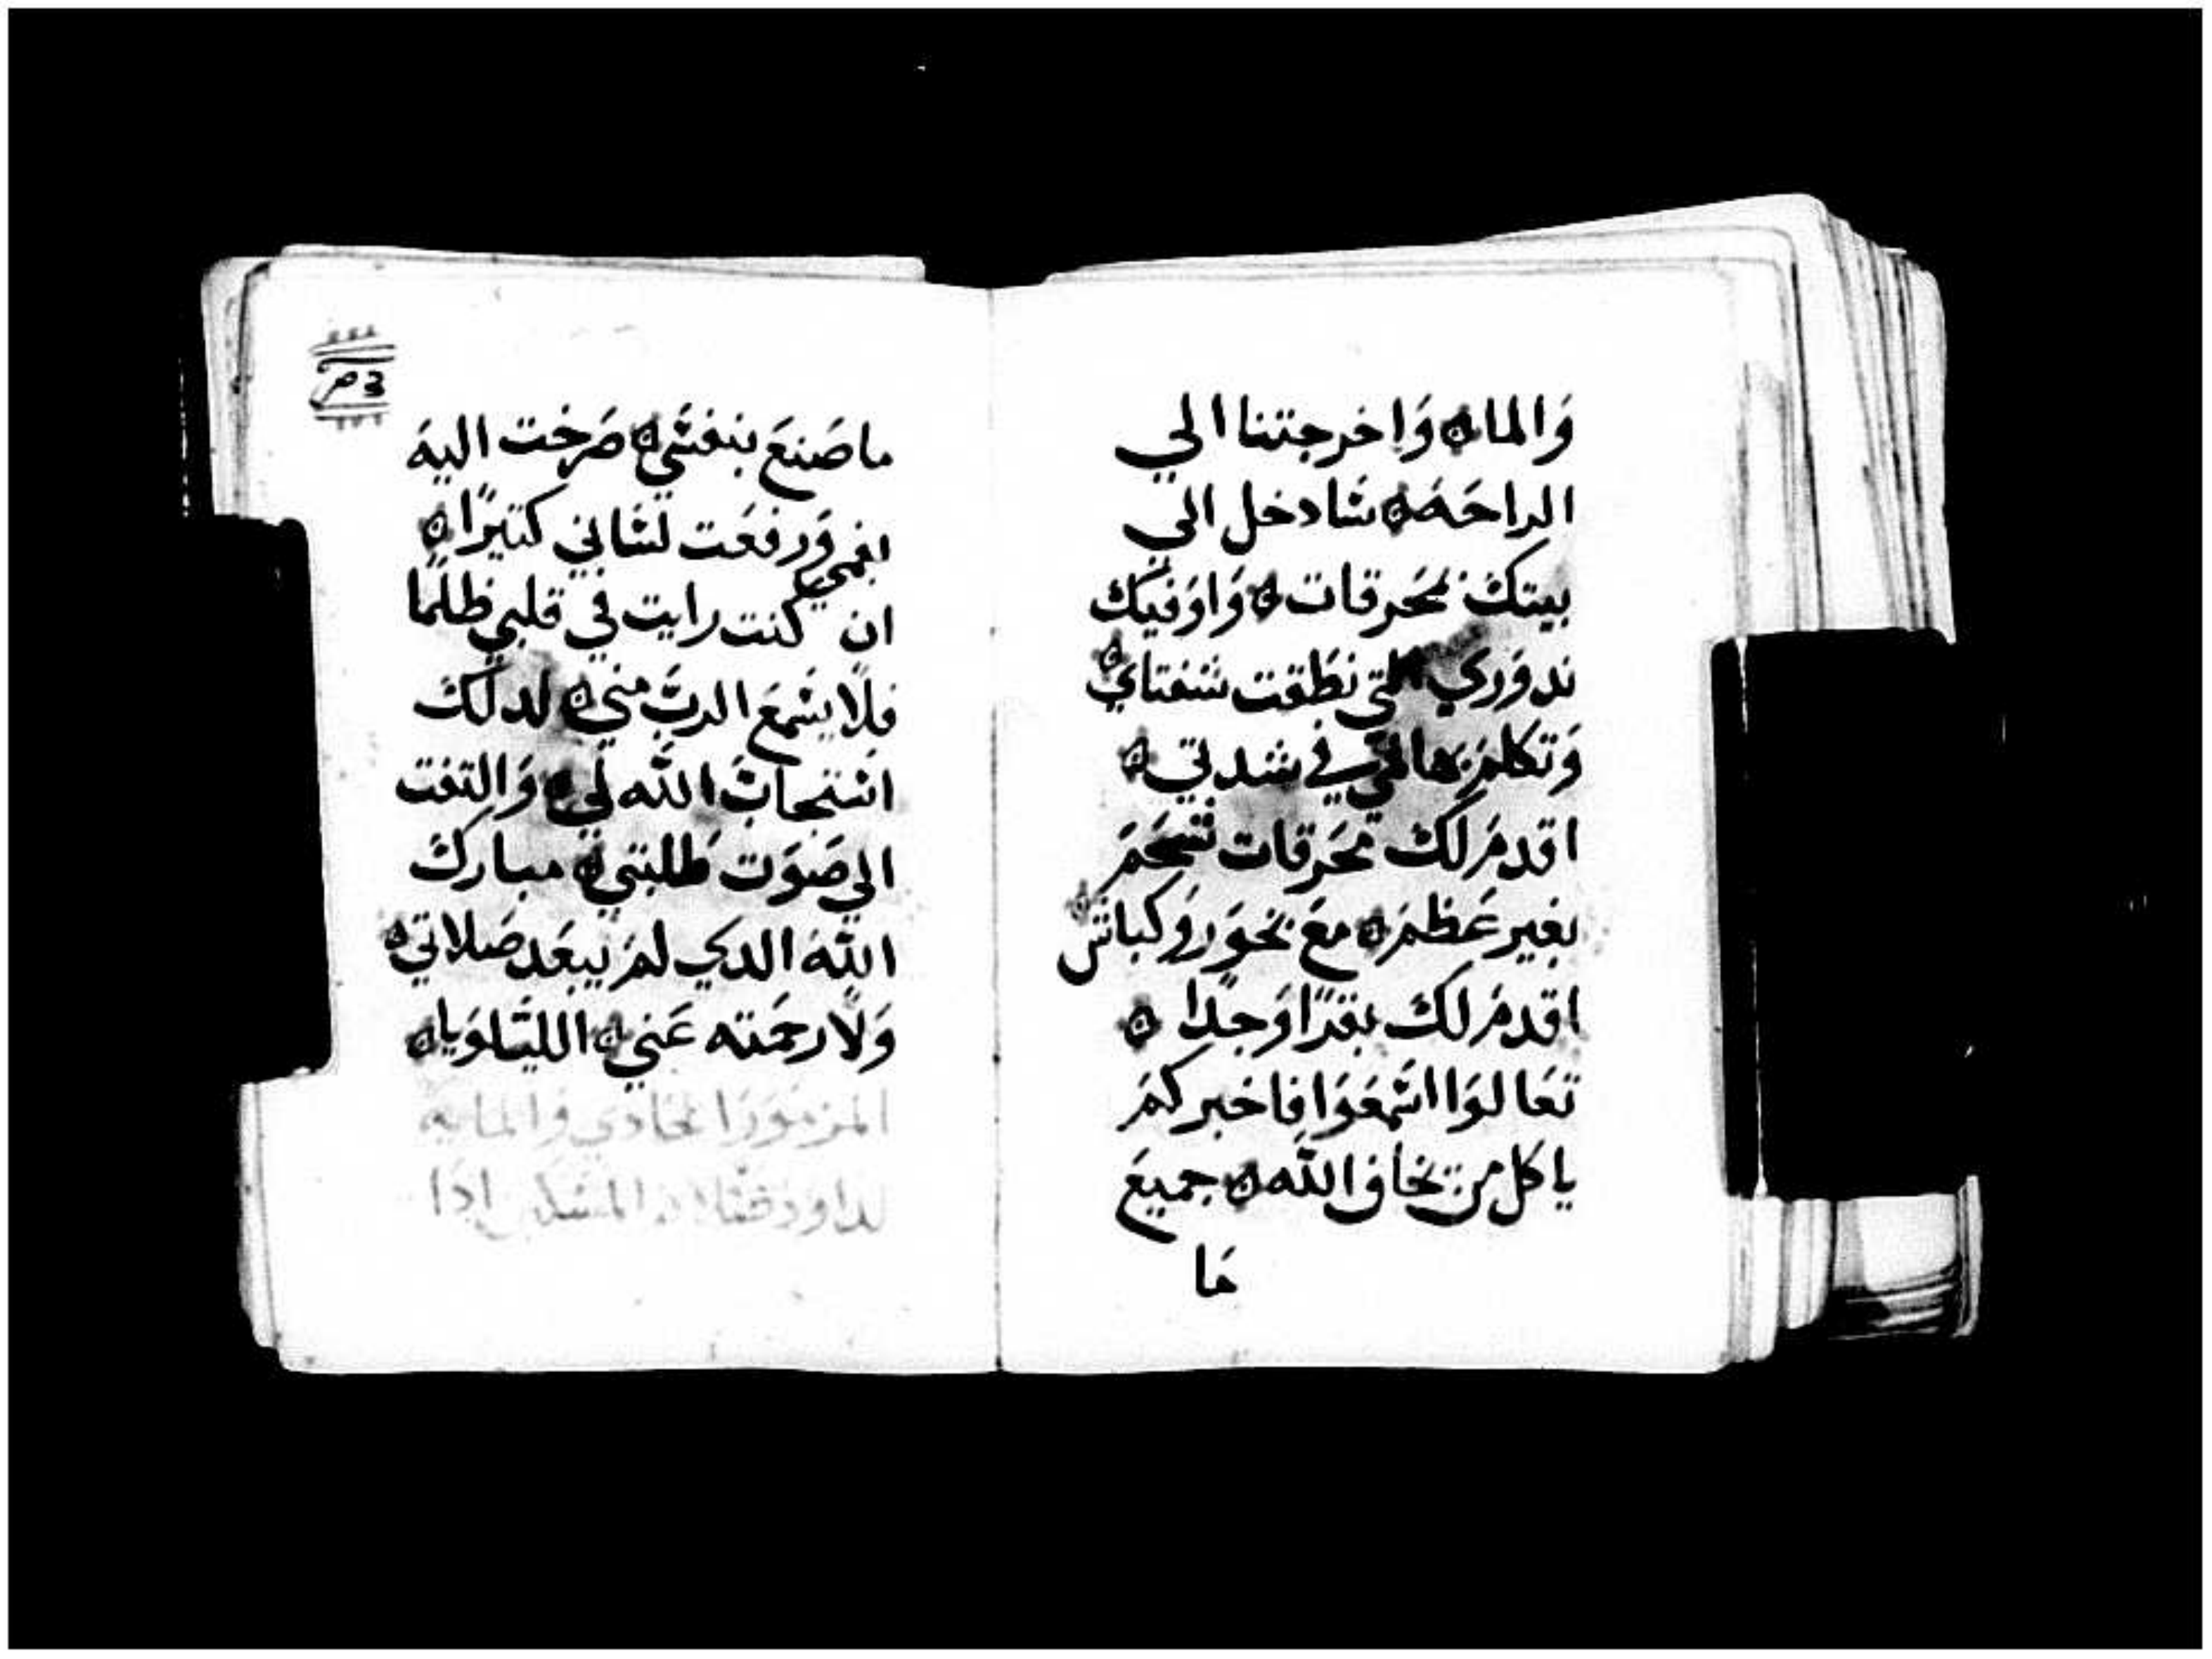 والما ۞ واخرجتنا الي
الراحه ۞ شادخل الي
بيتك بمحرقات ۞ واوفيك
ندوري التي نطقت شفتاي ۞
وتكلم بها في شدتي ۞
اقدم لك محرقات شحم
بغير عظم ۞ مع بخور وكباش ۞
اقدم لك بقرا وجدا ۞
تعالوا اشمعوا فاخبركم
ياكل من يخاف الله ۞ جميع
ما
ما صنع بنفشي ۞ صرخت اليه
بفمي ورفعت لشاني كتيرا ۞
ان كنت رايت في قلبي ظلما
فلا يشمع الرب مني ۞ لدلك
اشتجاب الله لي ۞ والتفت
الي صوت طلبتي ۞ مبارك
الله الدي لم يبعد صلاتي ۞
ولا رحمته عني ۞ الليلويا ۞
المزمور
لداود المشكن ادا